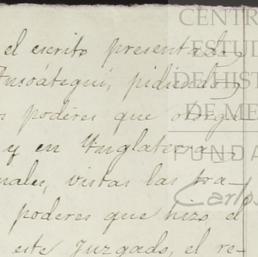 el escrito presentado
Insoátegui, pidiendo
poderes que otorgó
y en Inglaterra,
nales, vistas las ra-
poderes que hizo el
este Juzgado, el re-
CENTR
ESTUD
DE HIST
DE ME
FUNDA
Carlos